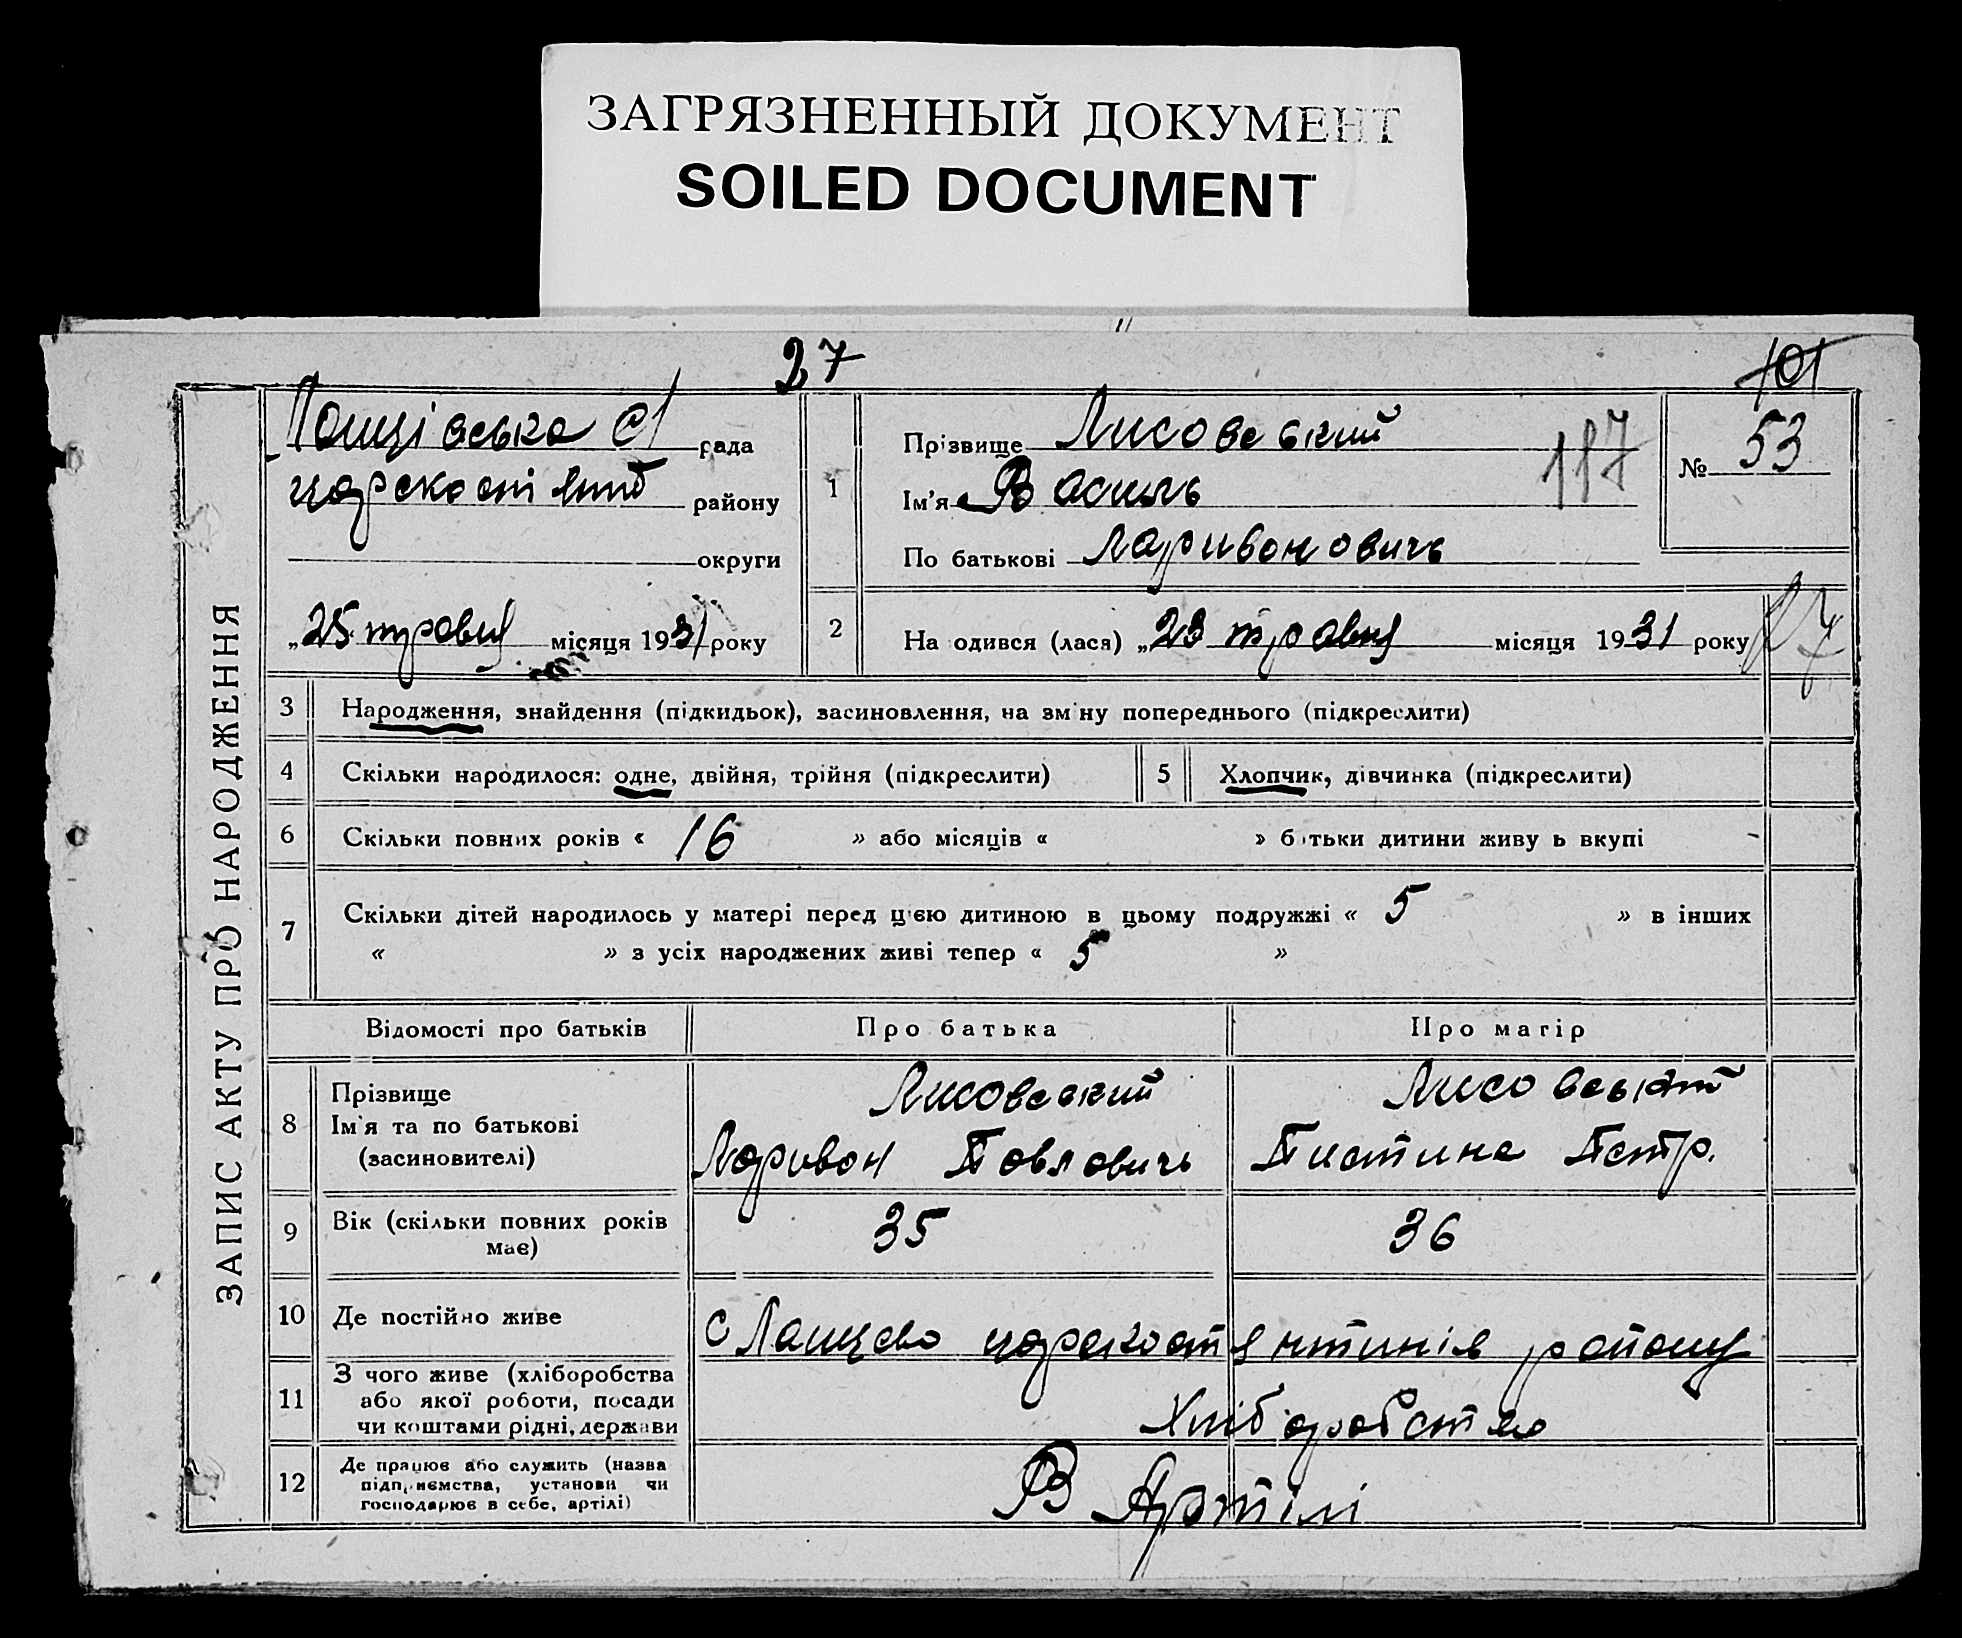 ЗАГРЯЗНЕННЫЙ ДОКУМЕНТ
SOILED DOCUMENT
27
101
ЗАПИС АКТУ ПРО НАРОДЖЕННЯ
Лащівська с/ рада
району
округи
„25 травня місяця 1931 року
1
Прізвище Лисовський
Ім'я Василь
По батькові Ларивонович
117
№ 53
2
На одився (лася) „23 травня місяця 1931 року
3 Народження, знайдення (підкидьок), засиновлення, на зміну попереднього (підкреслити)
4 Скільки народилося: одне, двійня, трійня (підкреслити) 5 Хлопчик, дівчинка (підкреслити)
6 Скільки повних років « 16 » або місяців « » батьки дитини живуть вкупі
7 Скільки дітей народилось у матері перед цією дитиною в цьому подружжі « 5 » в інших
« » з усіх народжених живі тепер « 5 »
Відомості про батьків Про батька Про матір
8 Прізвище
Ім'я та по батькові
(засиновителі)
Лисовський
Ларивон Павлович
Пистина Петр.
9 Вік (скільки повних років
має)
35 36
10 Де постійно живе с Лащево району
11 З чого живе (хліборобства
або якої роботи, посади
чи коштами рідні, держави
Хліборобство
12 Де працює або служить (назва
підприємства, установи чи
господарює в себе, артілі)
В Артілі